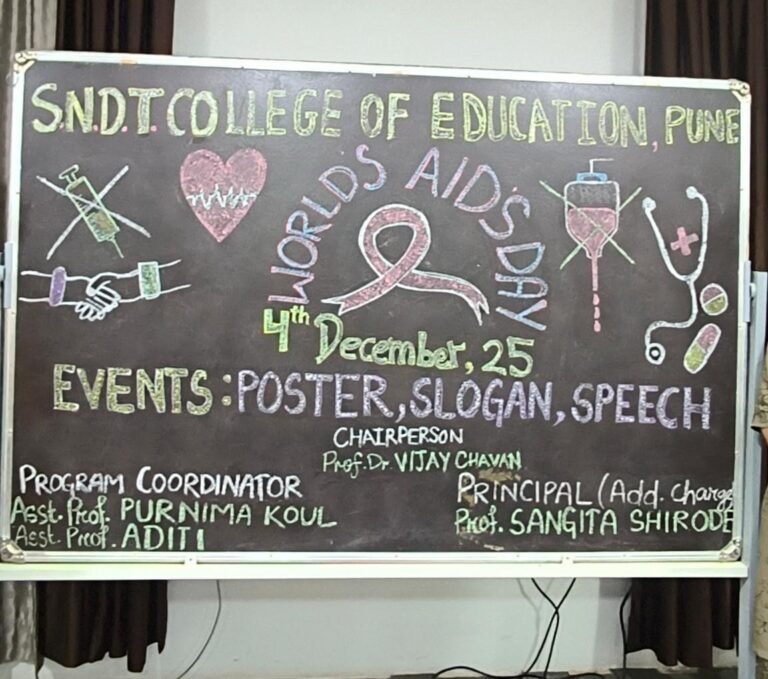 S.N.D.T COLLEGE OF EDUCATION, PUNE
WORLDS AID'S DAY
4th December, 25
EVENTS: POSTER, SLOGAN, SPEECH
CHAIRPERSON
Prof. Dr. VIJAY CHAVAN
PROGRAM COORDINATOR
Asst. Prof. PURNIMA KOUL
Asst. Prof. ADITI
PRINCIPAL (Add. Charge)
Prof. SANGITA SHIRODE